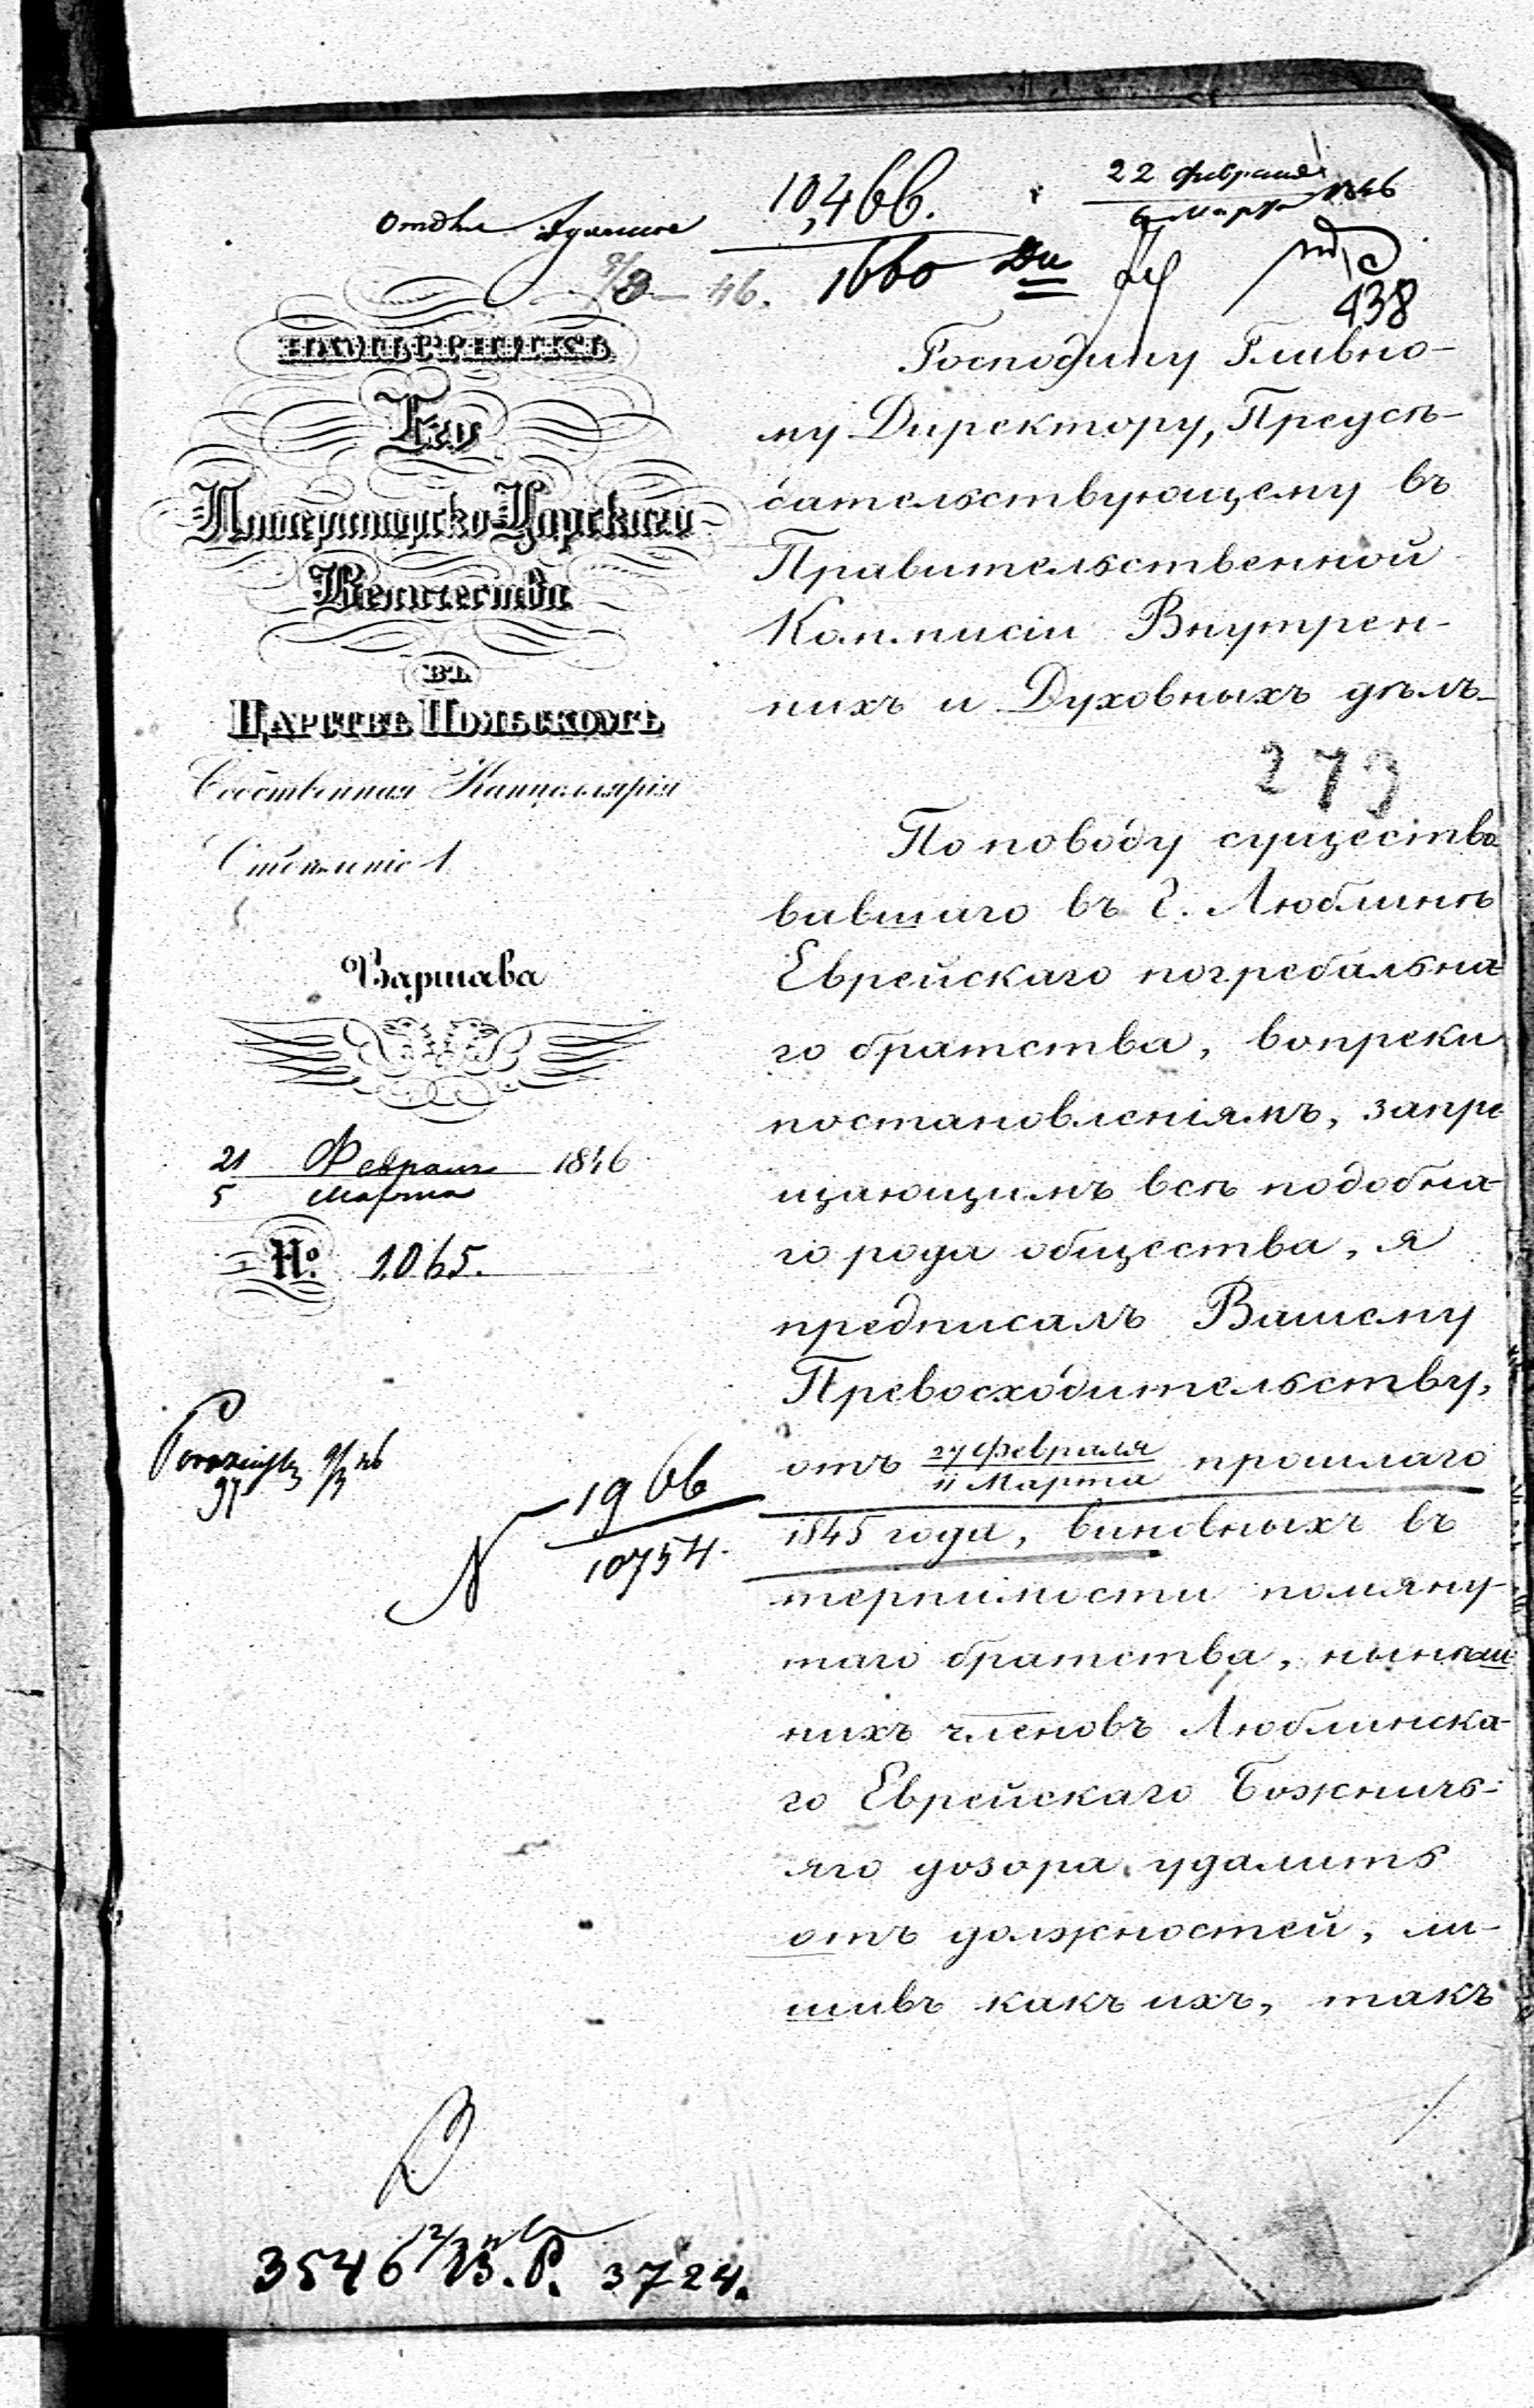 10,466.
22 Февраля
6 Марта 1846
9/3 46.
1660
438
НАМѢСТНИКЪ
Его
Императорско-Царскаго
Величества
ВЪ
ЦАРСТВѢ ПОЛЬСКОМЪ
Собственная Канцеллярія
Отдѣленіе 1
Варшава
21 Февраля 1846
5 Марта
№ 1065.
Господину Главно-
му Директору, Предсѣ-
дательствующему въ
Правительственной
Коммисіи Внутрен-
нихъ и Духовныхъ дѣлъ
273
По поводу существо
вавшаго въ г. Люблинѣ
Еврейскаго погребальна-
го братства, вопреки
постановленіямъ, запре
щающимъ всѣ подобна-
го рода общества, я
предписалъ Вашему
Превосходительству,
отъ 27 Февраля / 11 Марта прошлаго
1845 года, виновныхъ въ
терпимости помяну-
таго братства, нынѣш
нихъ членовъ Люблинска-
го Еврейскаго Божничь-
яго дозора удалить
отъ должностей, ли-
шивъ какъ ихъ, такъ
9/3 46
97
N 1966
10754.
3546 12/3 В.Р. 3724.